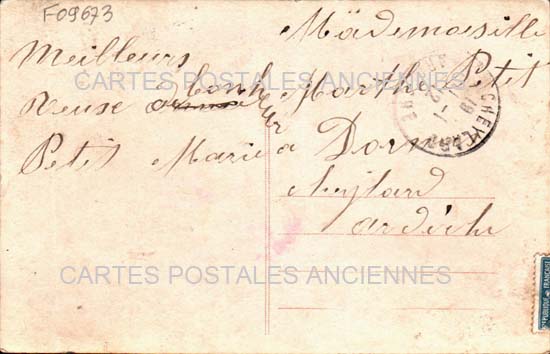 F09673
Meilleurs
Veux
Bonheur
Petit Marie
Mademoiselle
Marthe Petit
a Dorn
ardèche
CHEYLARD
CARTES POSTALES ANCIENNES
CARTES POSTALES ANCIENNES